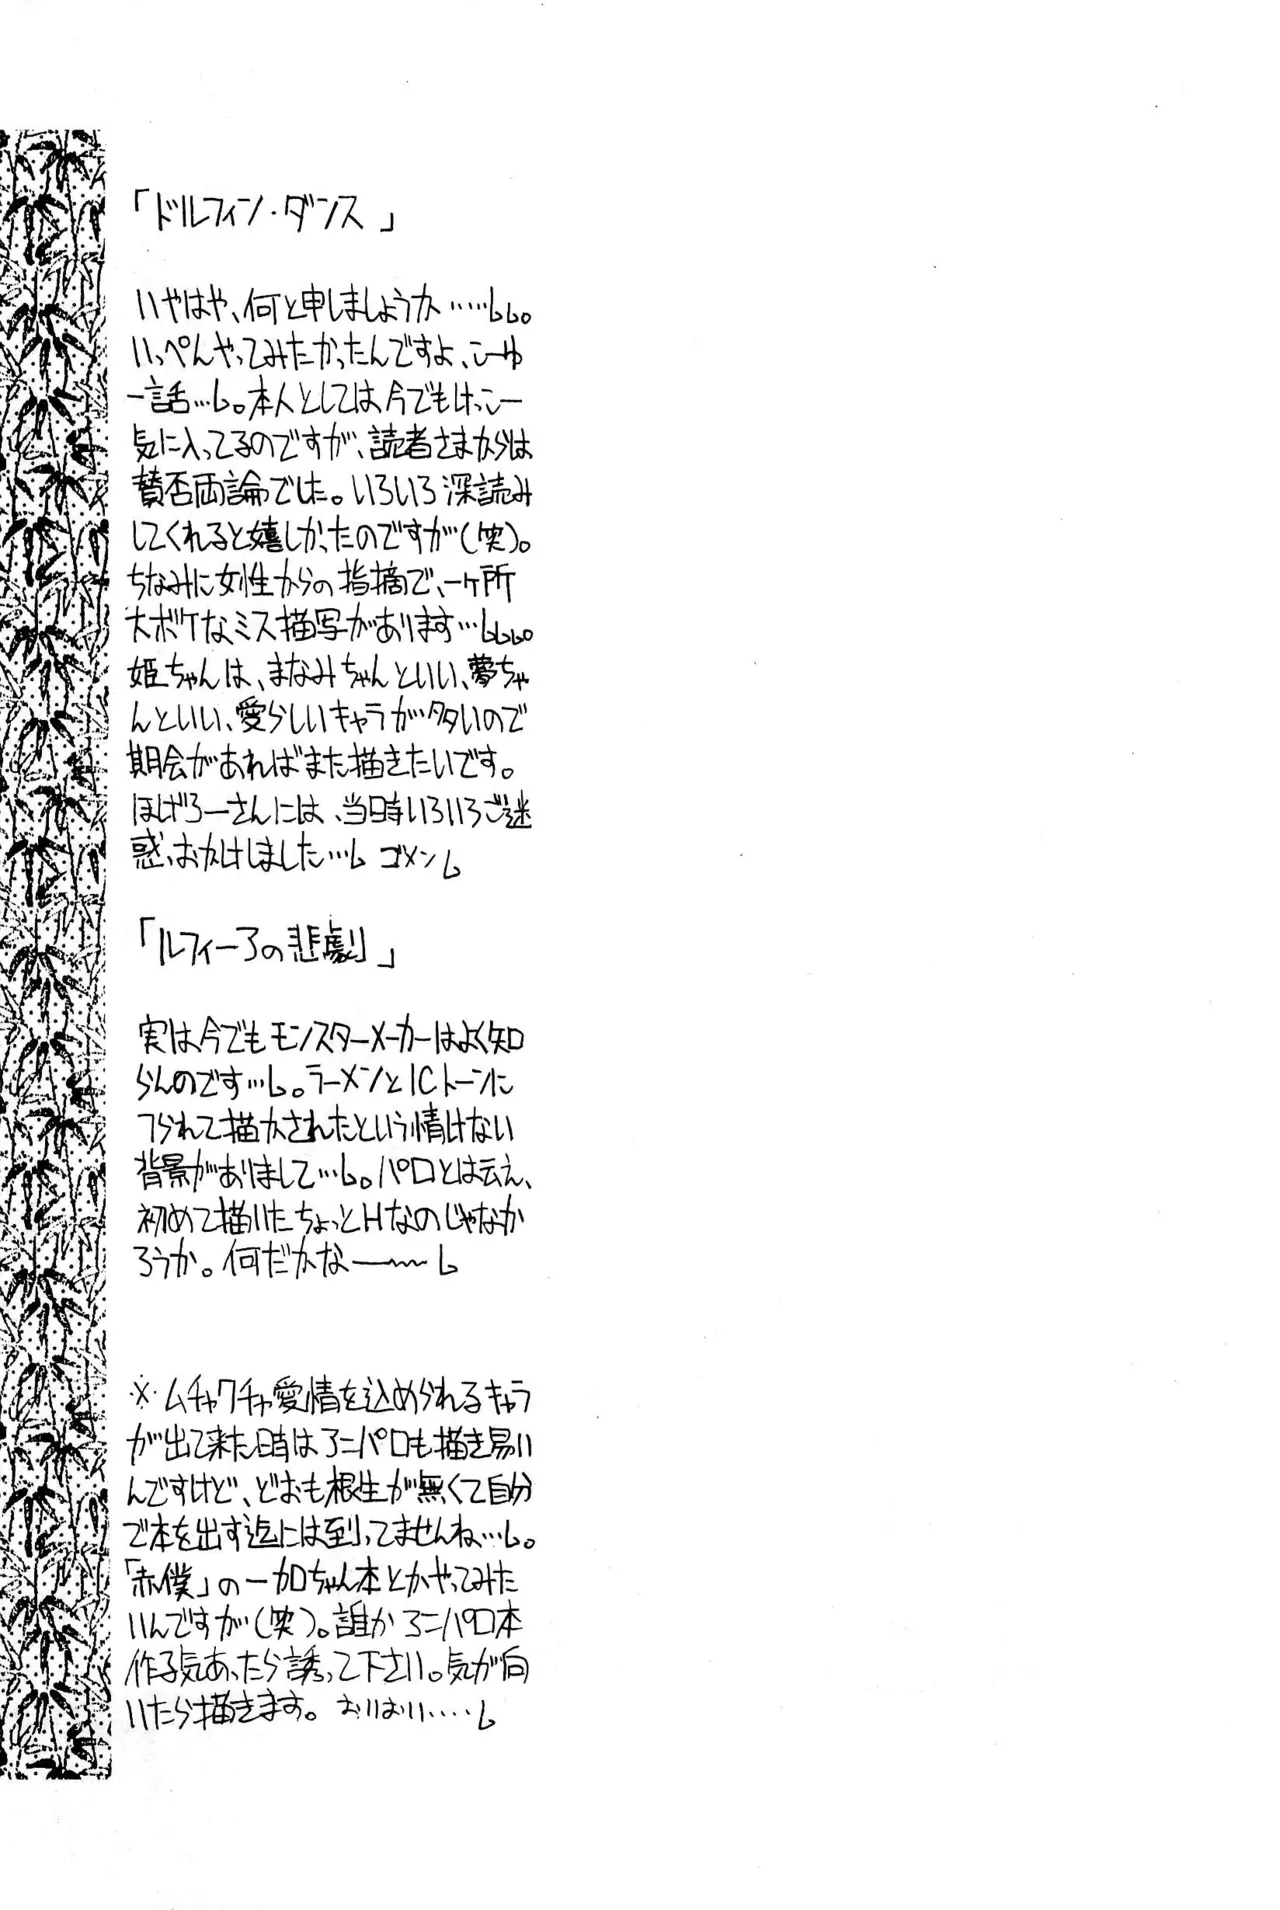 「ドルフィン・ダンス」
いやはや、何と申しましょうか……
いっぺんやってみたかったんですよ、こーゆ
ー話…。本人としては、今でもけっこー
気に入ってるのですが、読者さまからは
賛否両論でした。いろいろ深読み
してくれると嬉しかったのですが(笑)。
ちなみに女性からの指摘で、一ヶ所
大ボケなミス描写があります…
姫ちゃんは、まなみちゃんといい、夢ちゃ
んといい、愛らしいキャラが多いので
期会があればまた描きたいです。
ほげろーさんには、当時いろいろご迷
惑、おかけしました… ゴメン
「ルフィーアの悲劇」
実は、今でもモンスターメーカーはよく知
らんのです…。ラーメンとICトーンに
つられて描かされたという情けない
背景がありまして…。パロとは云え、
初めて描いたちょっとHなのじゃなか
ろうか。何だかな──〜〜
※ムチャクチャ愛情を込められるキャラ
が出て来た時はアニパロも描き易い
んですけど、どおも根性が無くて自分
で本を出す迄には到ってませんね…。
「赤僕」の一加ちゃん本とかやってみた
いんですが(笑)。誰かアニパロ本
作る気あったら誘って下さい。気が向
いたら描きます。おいおい….